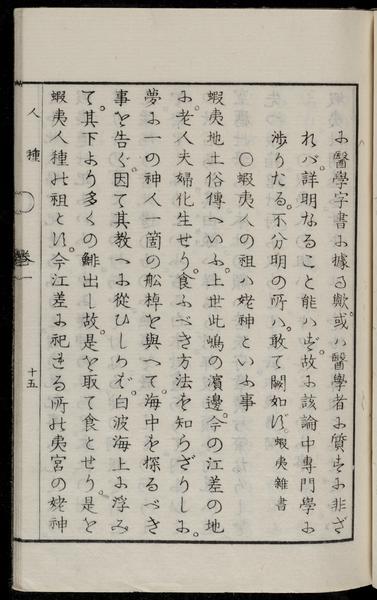 ふ醫學字書ふ據る歟。或ハ醫學者ふ質すふ非ざ
れバ詳明なること能ハず。故ふ該論中專門學ふ
渉りたる。不分明の所ハ。敢て闕如す。蝦夷雜書
〇蝦夷人の祖ハ姥神といふ事
蝦夷地土俗傳へいふ。上世此嶋の濱邊。今の江差の地
ふ老人夫婦化生せり。食ふべき方法を知らざりしふ。
夢ふ一の神人一箇の舩棹を與へて。海中を探るべき
事を告ぐ。因て其教へふ從ひしかば。白波海上ふ浮み
て。其下より多くの鯡出し故。是を取て食とせり。是を
蝦夷人種の祖とす。今江差ふ祀まる所の夷宮の姥神
人種
卷一
十五